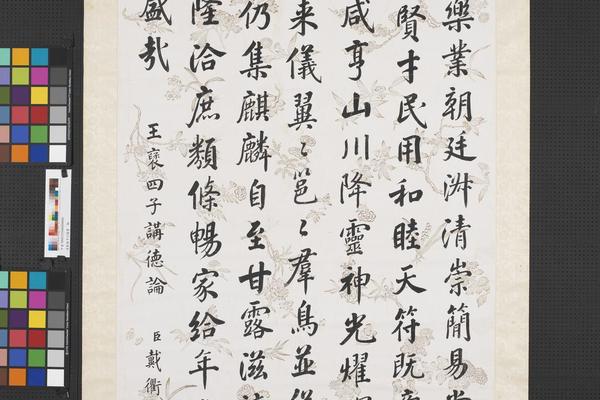 樂業朝廷淑清崇簡易
賢才民用和睦天符既
咸亨山川降靈神光耀
来儀翼〻邕〻羣鳥並
仍集麒麟自至甘露滋
隆洽庶類條暢家給年
盛哉 王褒四子講德論 臣戴衢